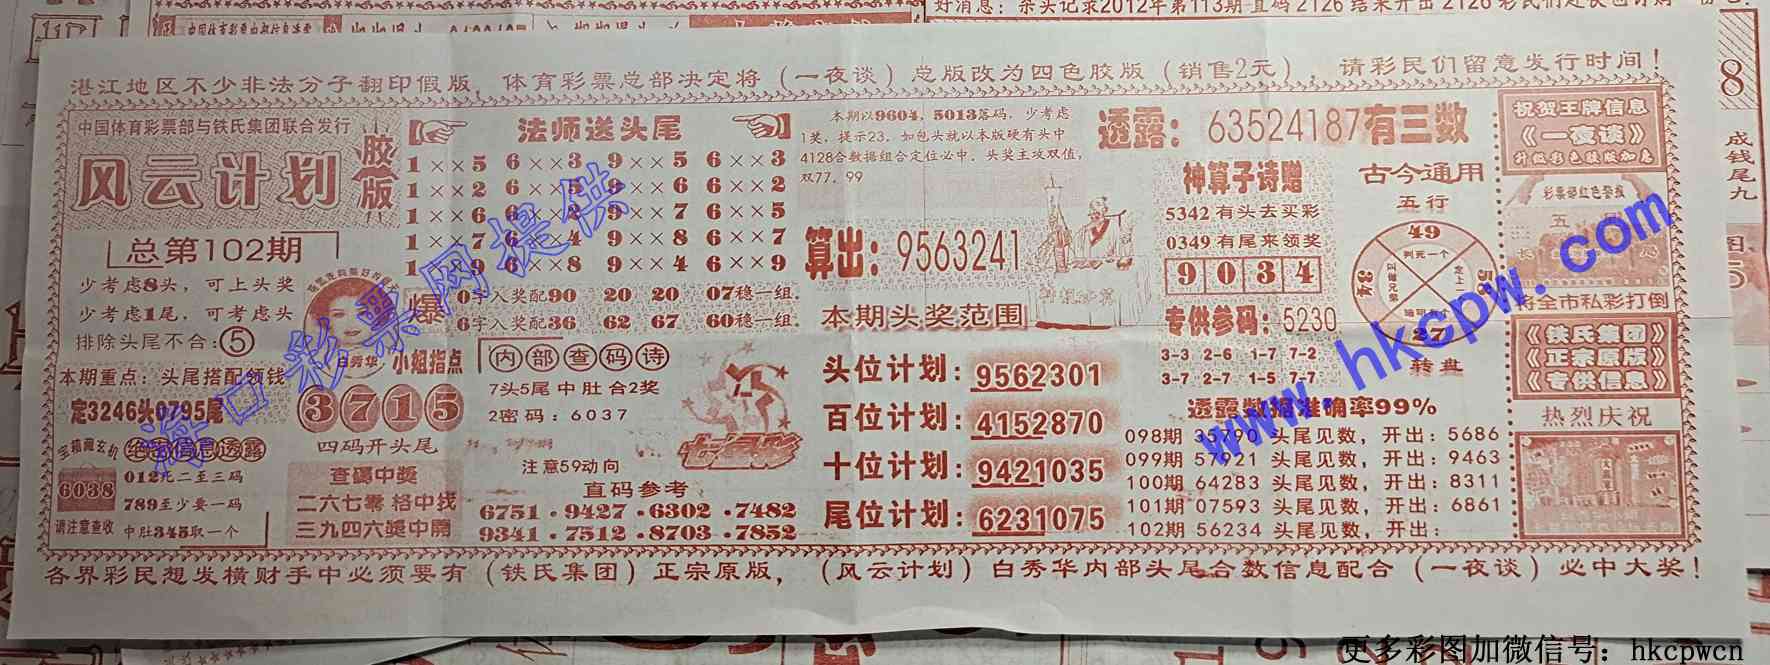 好消息：杀头记录2012年第113期直码2126结果开出2126彩民们赶快
湛江地区不少非法分子翻印假版，体育彩票总部决定将（一夜谈）总版改为四色胶版（销售2元），请彩民们留意发行时间！
中国体育彩票部与铁氏集团联合发行
风云计划
胶版
总第102期
少考虑8头，可上头奖
少考虑1尾，可考虑头
排除头尾不合：⑤
本期重点：头尾搭配领钱
定3246头0795尾
宝箱藏玄机
绝密信息透露
6038
请注意查收
012死二至三码
789至少要一码
中肚345取一个
法师送头尾
1××5 6××3 9××5 6××3
1××2 6××5 9××6 6××2
1××6 6××2 9××7 6××5
1××7 6××4 9××8 6××7
1××9 6××8 9××4 6××9
爆
0字入奖配90 20 20 07稳一组.
6字入奖配36 62 67 60稳一组.
白秀华
小姐指点
3715
四码开头尾
查码中奖
二六七零 格中找
三九四六奖中开
内部查码诗
7头5尾中肚合2奖
2密码：6037
七星彩
注意59动向
直码参考
6751·9427·6302·7482
9341·7512·8703·7852
本期以9604，5013落码，少考虑
1奖，提示23，如包头就以本版硬有头中
4128合数据组合定位必中，头奖主攻双值，
双77，99
算出：9563241
本期头奖范围
头位计划：9562301
百位计划：4152870
十位计划：9421035
尾位计划：6231075
透露：63524187有三数
神算子诗赠
5342有头去买彩
0349有尾来领奖
9034
专供参码：5230
3-3 2-6 1-7 7-2
3-7 2-7 1-5 7-7
古今通用
五行
49
27
转盘
透露数据准确率99%
098期 35790 头尾见数，开出：5686
099期 57921 头尾见数，开出：9463
100期 64283 头尾见数，开出：8311
101期 07593 头尾见数，开出：6861
102期 56234 头尾见数，开出：
祝贺王牌信息
《一夜谈》
升级彩色胶版加急
彩票部红色警报
将全市私彩打倒
《铁氏集团》
《正宗原版》
《专供信息》
热烈庆祝
各界彩民想发横财手中必须要有（铁氏集团）正宗原版，（风云计划）白秀华内部头尾合数信息配合（一夜谈）必中大奖！
8
成钱尾九
海口彩票网提供
www.hkcpw.com
更多彩图加微信号：hkcpwcn